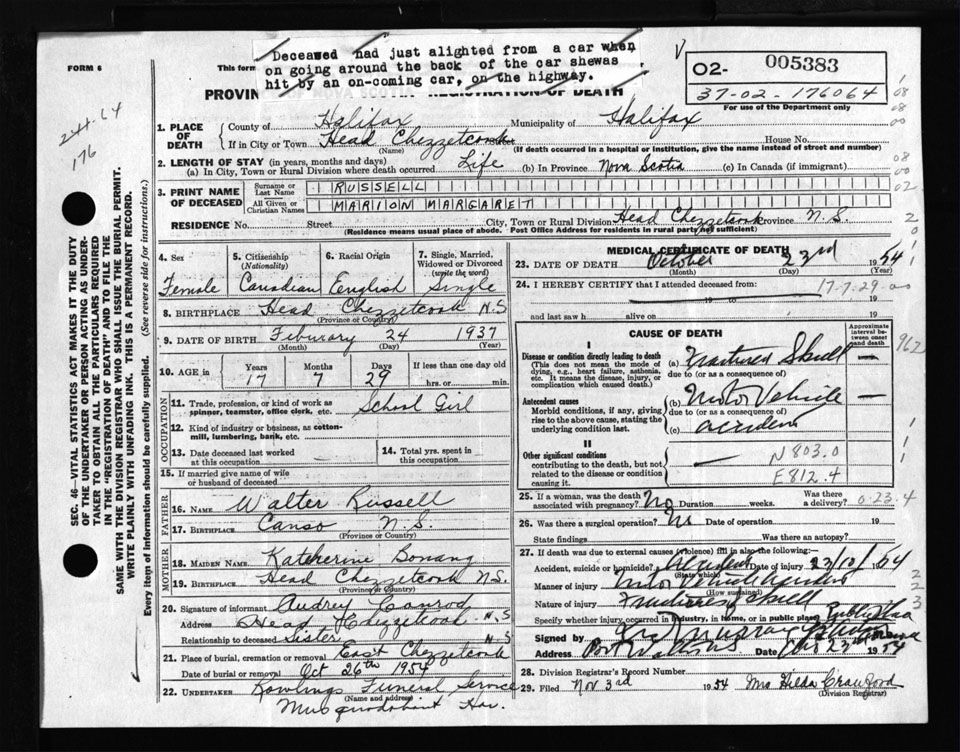 Deceased had just alighted from a car when
on going around the back of the car shewas
hit by an on-coming car, on the highway.
FORM 6
This form
02- 005383
37-02-176064
For use of the Department only
PROVIN OF NOVA SCOTIA REGISTRATION OF DEATH
244-64
176
1. PLACE OF DEATH
County of Halifax Municipality of Halifax
If in City or Town Head Chezzetcook House No.
(Name) (If death occurred in a hospital or institution, give the name instead of street and number)
2. LENGTH OF STAY (in years, months and days)
(a) In City, Town or Rural Division where death occurred Life (b) In Province Nova Scotia (c) In Canada (if immigrant)
3. PRINT NAME OF DECEASED
Surname or Last Name RUSSELL
All Given or Christian Names MARION MARGARET
RESIDENCE No. Street City, Town or Rural Division Head Chezzetcook Province N.S.
(Residence means usual place of abode. Post Office Address for residents in rural parts not sufficient)
4. Sex Female
5. Citizenship (Nationality) Canadian
6. Racial Origin English
7. Single, Married, Widowed or Divorced (write the word) Single
8. BIRTHPLACE Head Chezzetcook N.S
(Province or Country)
9. DATE OF BIRTH Feburary 24 1937
(Month) (Day) (Year)
10. AGE in Years 17 Months 7 Days 29 If less than one day old
hrs. or min.
OCCUPATION
11. Trade, profession, or kind of work as spinner, teamster, office clerk, etc. School Girl
12. Kind of industry or business, as cotton-mill, lumbering, bank, etc.
13. Date deceased last worked at this occupation
14. Total yrs. spent in this occupation
15. If married give name of wife or husband of deceased
FATHER
16. NAME Walter Russell
17. BIRTHPLACE Canso N.S.
(Province or Country)
MOTHER
18. MAIDEN NAME Katherine Bonang
19. BIRTHPLACE Head Chezzetcook N.S.
(Province or Country)
20. Signature of informant Audrey Conrod
Address Head Chezzetcook N.S
Relationship to deceased Sister N.S
21. Place of burial, cremation or removal East Chezzetcook
Date of burial or removal Oct 26th 1954
22. UNDERTAKER Rowlings Funeral Service
(Name and address)
Musquodoboit Har.
MEDICAL CERTIFICATE OF DEATH
23. DATE OF DEATH October 23rd 1954
(Month) (Day) (Year)
24. I HEREBY CERTIFY that I attended deceased from:
17-7-29
19 to 19
and last saw h alive on 19
CAUSE OF DEATH
Approximate interval between onset and death
I
Disease or condition directly leading to death
(This does not mean the mode of dying, e.g., heart failure, asthenia, etc. It means the disease, injury, or complication which caused death.)
(a) Fractured Skull —
due to (or as a consequence of)
Antecedent causes
Morbid conditions, if any, giving rise to the above cause, stating the underlying condition last.
(b) Motor Vehicle —
due to (or as a consequence of)
(c) accident
II
Other significant conditions
contributing to the death, but not related to the disease or condition causing it.
N803.0
E812.4
962
25. If a woman, was the death associated with pregnancy? No Duration weeks. Was there a delivery?
0-23.4
26. Was there a surgical operation? No Date of operation 19
State findings Was there an autopsy?
27. If death was due to external causes (violence) fill in also the following:
Accident, suicide or homicide? Accident Date of injury 23/10/54
(State which)
Manner of injury Motor Vehicle Accident
(How sustained)
Nature of injury Fractured Skull
Specify whether injury occurred in industry, in home, or in public place
Signed by Murray
Address Port Wallis Date 1954
28. Division Registrar's Record Number
29. Filed Nov 3rd 1954 Mrs Hilda Crawford
(Division Registrar)
SEC. 46—VITAL STATISTICS ACT MAKES IT THE DUTY
OF THE UNDERTAKER OR PERSON ACTING AS UNDER-
TAKER TO OBTAIN ALL THE PARTICULARS REQUIRED
IN THE "REGISTRATION OF DEATH" AND TO FILE THE
SAME WITH THE DIVISION REGISTRAR WHO SHALL ISSUE THE BURIAL PERMIT.
WRITE PLAINLY WITH UNFADING INK. THIS IS A PERMANENT RECORD.
Every item of information should be carefully supplied. (See reverse side for instructions.)